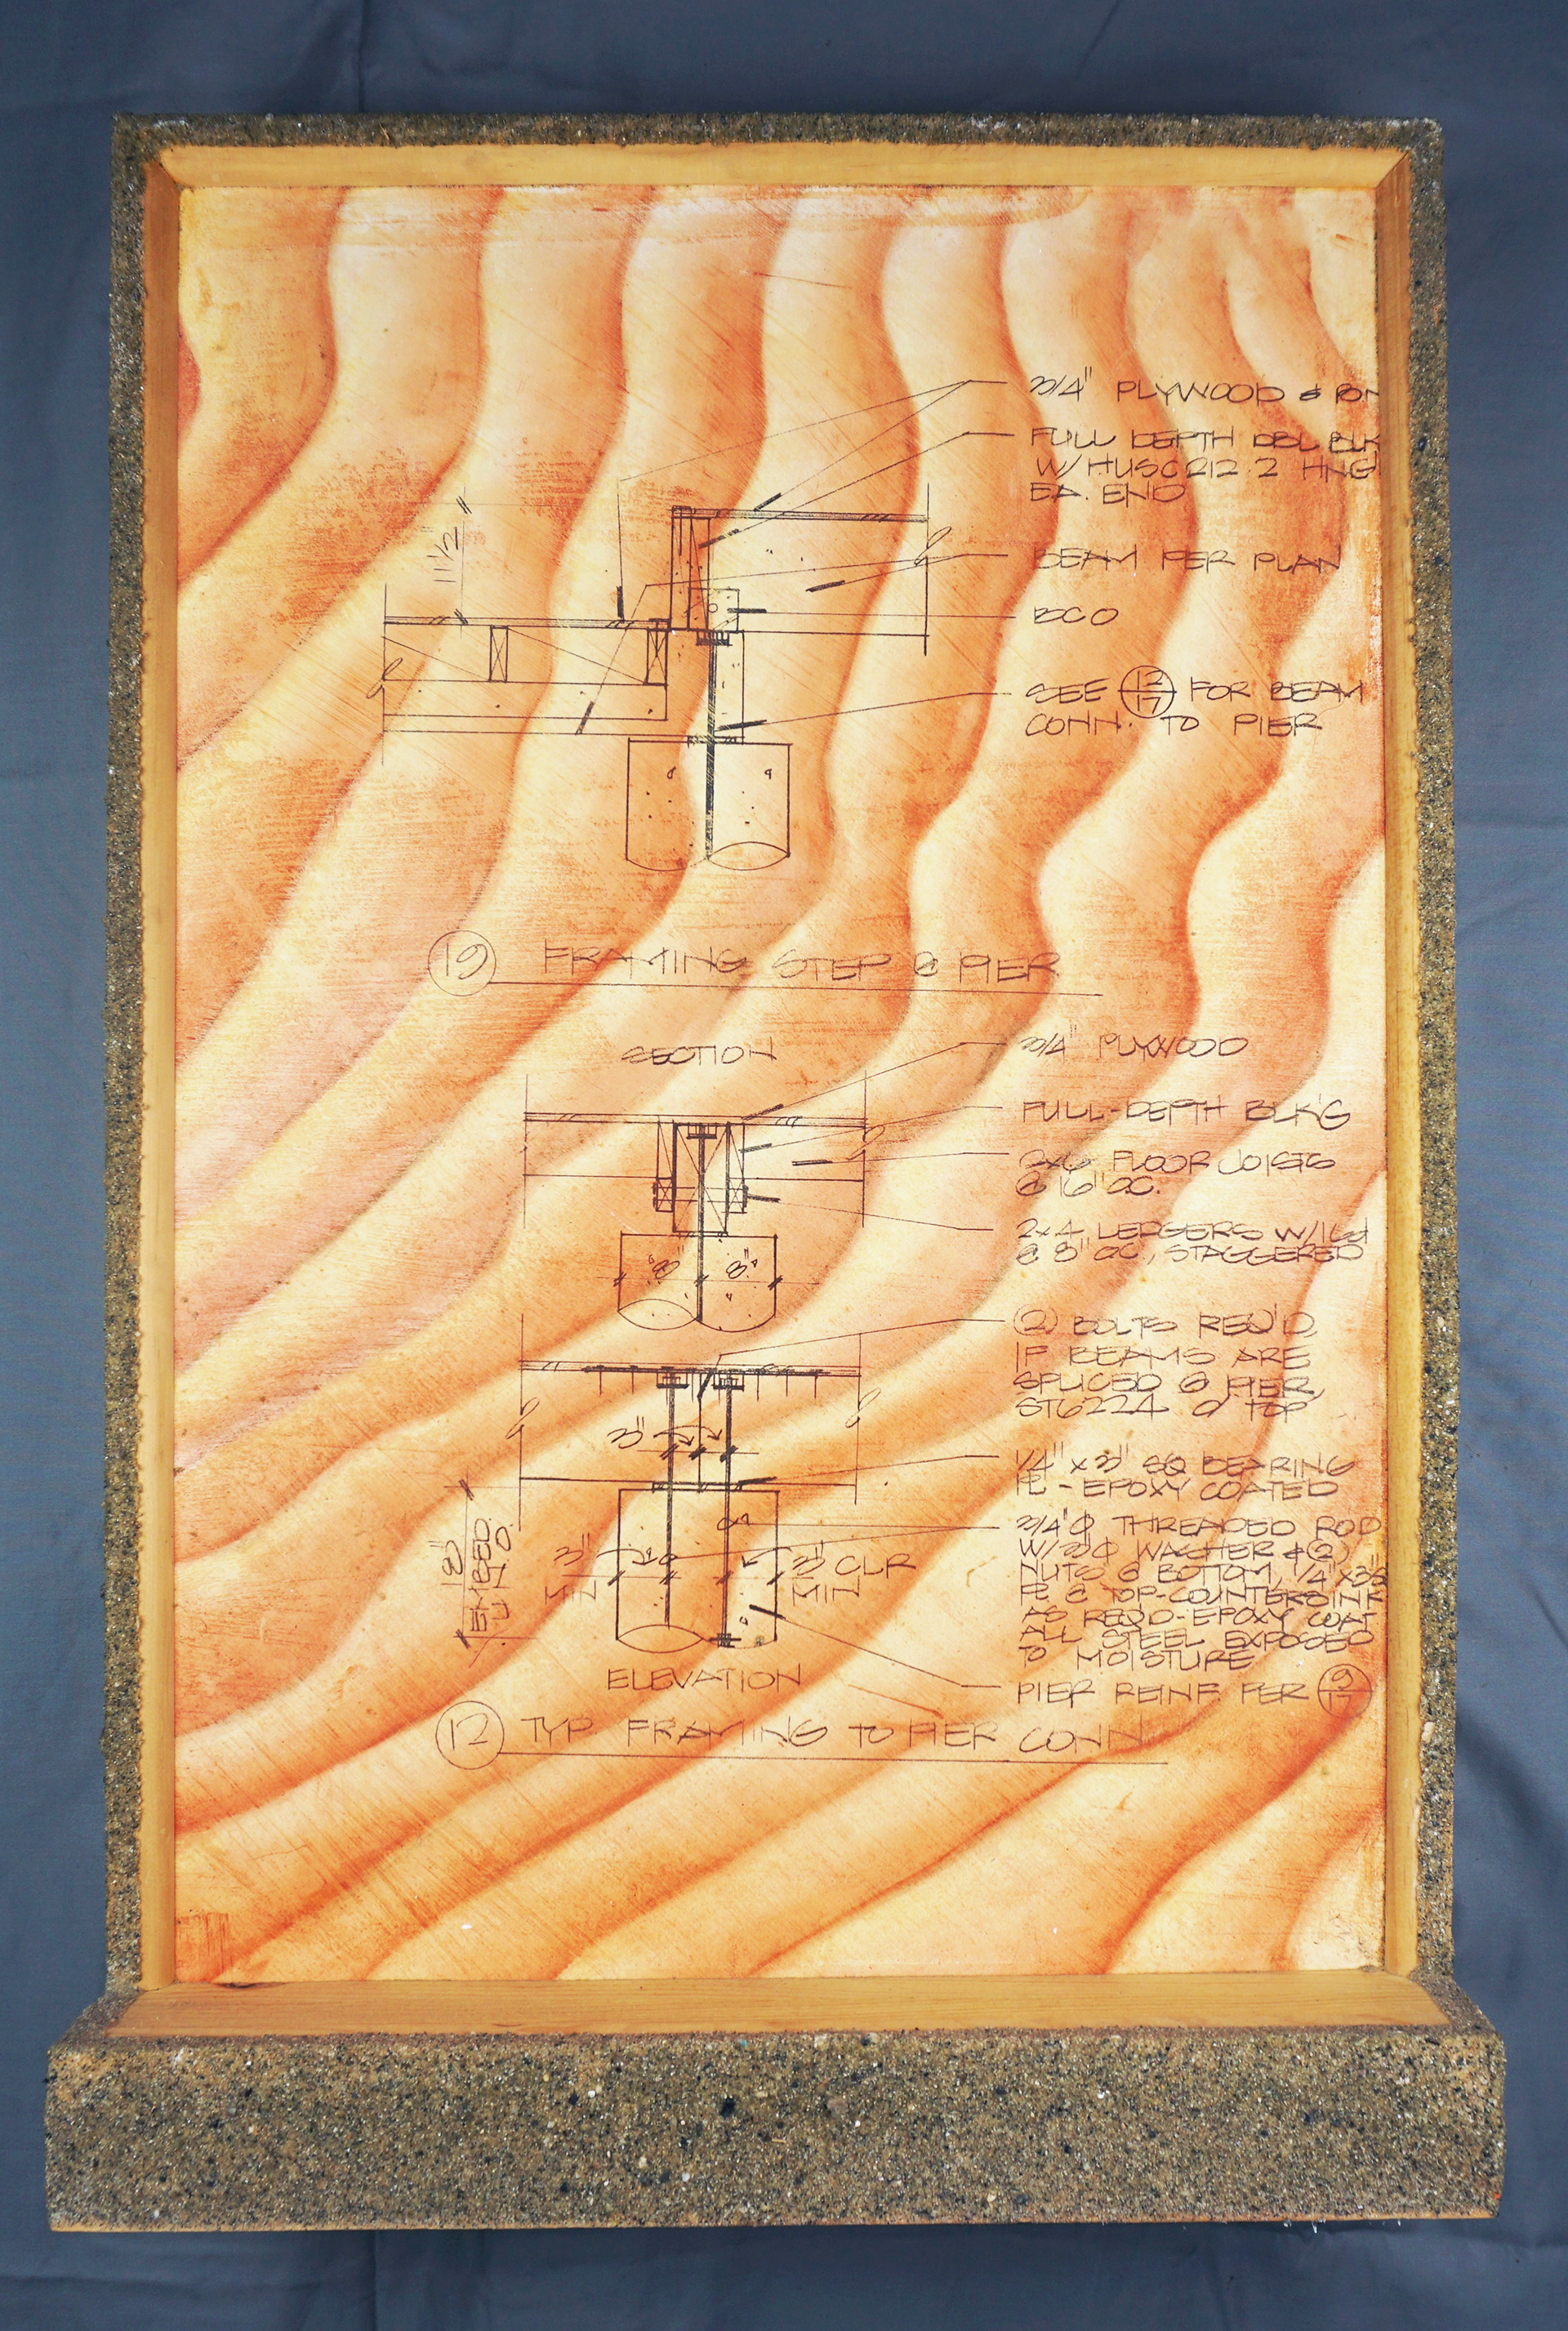 3/4" PLYWOOD &
FULL DEPTH DBL BLK
W/HUSC212.2 HNG
EA. END
11 1/2"
BEAM PER PLAN
BCO
SEE 12/17 FOR BEAM
CONN. TO PIER
19 FRAMING STEP @ PIER
SECTION
3/4" PLYWOOD
FULL-DEPTH BLK'G
2x6 FLOOR JOISTS
@ 16" OC.
2x4 LEDGERS W/16d
@ 8" OC., STAGGERED
8" 8"
(2) BOLTS REQ'D
IF BEAMS ARE
SPLICED @ PIER,
ST6224 @ TOP
3"
1/4" x 3" SQ BEARING
PL - EPOXY COATED
3/4"Φ THREADED ROD
W/ 2"Φ WASHER &(2)
NUTS @ BOTTOM, 1/4"x3"
PL @ TOP-COUNTERSINK
AS REQ'D-EPOXY COAT
ALL STEEL EXPOSED
TO MOISTURE
18"
EMBED
U.N.O.
3"
MIN
3" CLR
MIN
PIER REINF. PER 9/17
ELEVATION
12 TYP. FRAMING TO PIER CONN.